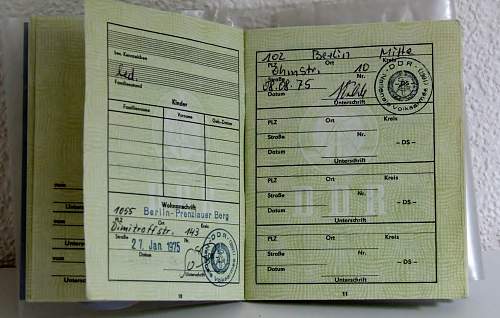 bes. Kennzeichen
led.
Familienstand
Kinder
Familienname Vorname Geb.-Datum
Wohnanschrift
1055 Berlin-Prenzlauer Berg
PLZ
Dimitroffstr. 143
Straße Nr.
27. Jan. 1975
Datum
Unterschrift
10
102 Berlin Mitte
PLZ Ort Kreis
Ohmstr. 10
Straße Nr.
08.08.75
Datum Unterschrift
PLZ Ort Kreis
Straße Nr.
Datum – DS –
Unterschrift
PLZ Ort Kreis
Straße Nr.
Datum – DS –
Unterschrift
PLZ Ort Kreis
Straße Nr.
Datum – DS –
Unterschrift
11
DDR